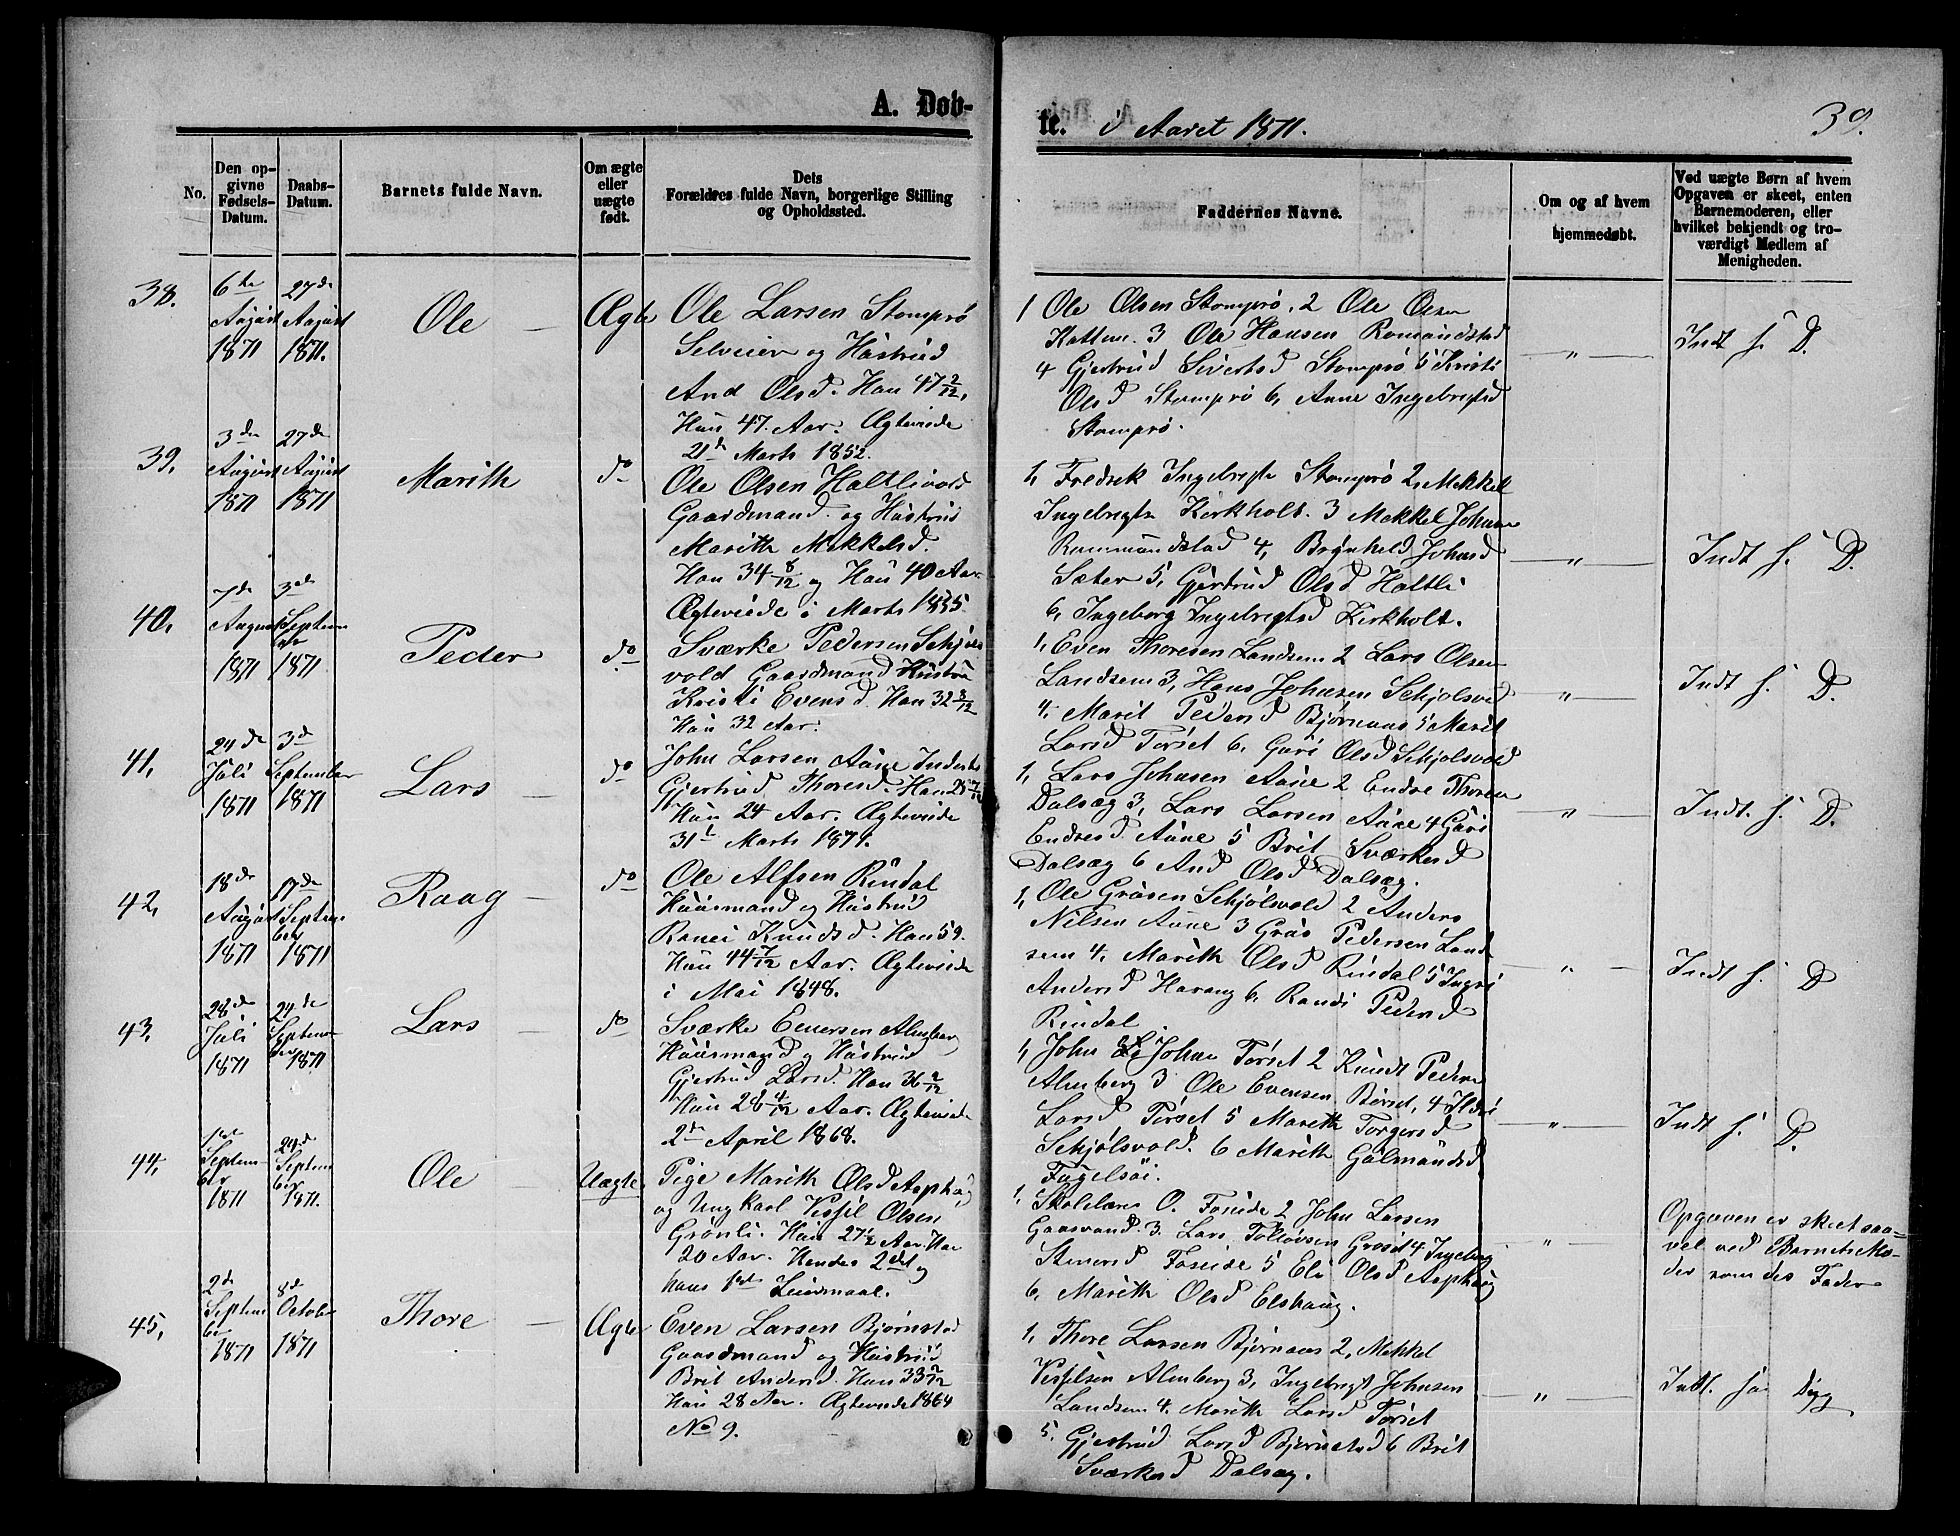 A. Døb-
te. i Aaret 1871.
39.
No.
Den op-
givne
Fødsels-
Datum.
Daabs-
Datum.
Barnets fulde Navn.
Om ægte
eller
uægte
født.
Dets
Forældres fulde Navn, borgerlige Stilling
og Opholdssted.
Faddernes Navne.
Om og af hvem
hjemmedøbt.
Ved uægte Børn af hvem
Opgaven er skeet, enten
Barnemoderen, eller
hvilket bekjendt og tro-
værdigt Medlem af
Menigheden.
38.
6te
August
1871
27de
August
1871.
Ole
Ægte
Ole Larsen Stomprø
Selveier og Hustrud
And Olsd. Han 47 2/12,
Hun 47. Aar. Ægteviede
21de Marts 1852.
1 Ole Olsen Stomprø, 2 Ole Olsen
Kattem. 3 Ole Hansen Romundstad
4 Gjertrud Sivertsd Stomprø 5 Kristi
Olsd Stomprø 6, Anne Ingebrigtsd
Stomprø.
"
Indt f. D.
39.
3de
August
1871
27de
August
1871
Marith
do
Ole Olsen Haltlivold
Gaardmand og Hustrud
Marith Mekkelsd.
Han 34 8/12 og Hun 40 Aar
Ægteviede i Marts 1855.
1, Fredrek Ingebrigts Stomprø 2, Mekkel
Ingebrigts Kirkholt. 3 Mekkel Johnsen
Rommundstad 4, Brynheld Johnsd
Sæter 5, Gjertrud Olsd Haltli
6, Ingeborg Ingebrigtsd Kirkholt.
"
Indt f. D.
40.
7de
August
1871
3de
Septem
ber
1871
Peder
do
Sværke Pedersen Skjøls
vold Gaardmand Hustru
Kristi Evensd. Han 32 3/12
Hun 32 Aar.
1, Even Thoresen Landsem 2 Lars Olsen
Landsem 3, Hans Johnsen Skjølsvold
4. Marit Pedersd Bjørnaas 5 Marit
Larsd Torset 6, Guri Olsd Skjølsvold
"
Indt f. D.
41.
24de
Juli
1871
3de
September
1871
Lars
do
John Larsen Aune Inderst
Gjertrud Thoresd. Han 28 7/12
Hun 24 Aar. Ægteviede
31t Marts 1871.
1, Lars Johnsen Aune 2 Endre Thoresen
Dalsæg 3, Lars Larsen Aune 4 Guri
Endresd Aune 5 Brit Sværkesd
Dalsæg 6 And Olsd Dalsæg.
"
Indt. f. D.
42,
18de
August
1871
17de
Septem
ber
1871
Raag
do
Ole Alfsen Rindal
Huusmand og Hustrud
Ranei Knudsd. Han 59.
Hun 44 7/12 Aar. Ægteviede
i Mai 1848.
1, Ole Gråsen Skjølsvold 2 Anders
Nilsen Aune 3 Grås Pedersen Land
sem 4, Marith Olsd Rindal 5 Ingri
Andersd Harang 6, Randi Pedersd
Rindal
"
Indt f. D
43.
28de
Juli
1871
24de
Septem
ber 1871
Lars
do
Sværke Evensen Almberg
Huusmand og Hustrud
Gjertrud Larsd. Han 36 2/12
Hun 28 4/12 Aar. Ægteviede
2de April 1868.
1, John Johns Torset 2 Knudt Peders
Almberg 3 Ole Evensen Børset, 4 Ildri
Larsd Torset 5 Marith Torgersd
Skjølsvold. 6 Marith Gulmundsd
Fugelsøi.
"
Indt f. D.
44,
1ste
Septem
ber
1871
24de
Septem
ber
1871.
Ole
Uægte
Pige Marith Olsd Aasphaug
og Ungkarl Vessel Olsen
Grønli. Hun 27 1/2 Aar. Han
20 Aar. Hendes 2det og
hans 1ste Leiermaal.
1, Skolelærer O. Foseide 2 John Larsen
Gaasvand. 3. Lars Tollovsen Groset 4 Ingeborg
Steners d Foseide 5 Eli Olsd Aasphaug
6, Marith Olsd Elshaug.
"
Opgaven er skeet saa-
vel ved Barnets Mo-
der som des Fader
45.
2de
Septem
ber
1871
8de
October
1871
Thore
Ægte
Even Larsen Bjørnstad
Gaardmand og Hustrud
Brit Andersd. Han 33 5/12
Hun 28 Aar. Ægteviede 1864
No 9.
1, Thore Larsen Bjørnaas 2, Mekkel
Vesselsen Almberg 3, Ingebrigt Johnsen
Landsem 4. Marith Larsd Torset
5. Gjertrud Larsd Bjørnstad 6 Brit
Sværkesd Dalsæg.
"